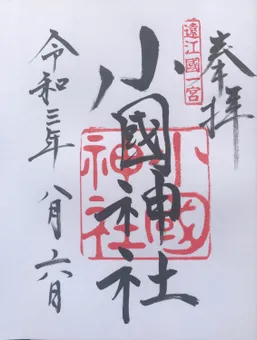 奉拝
遠江國一宮
小國神社
小國神社
令和三年 八月六日